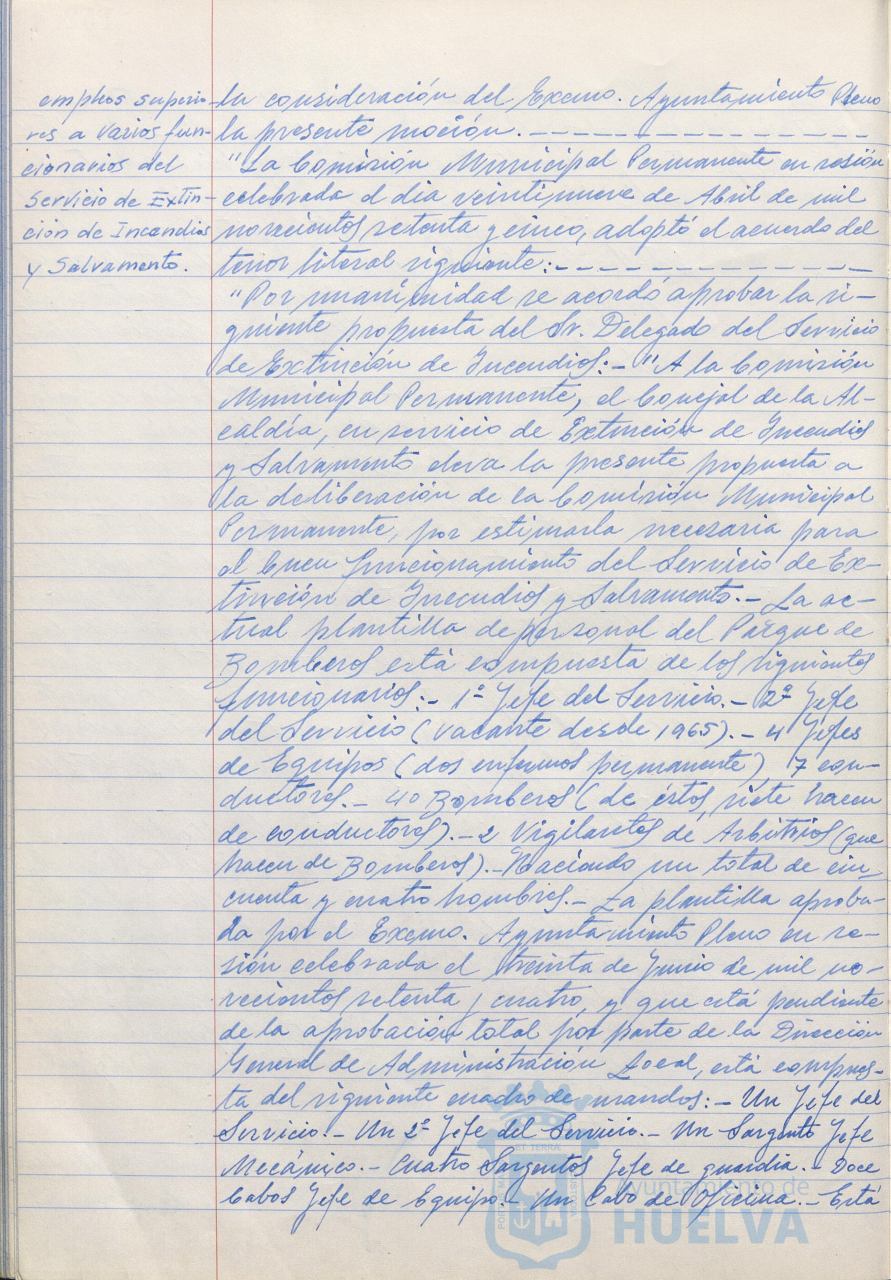 empleos superio-
res a varios fun-
cionarios del
Servicio de Extin-
ción de Incendios
y Salvamento.
la consideración del Excmo. Ayuntamiento Pleno
la presente moción.
"La Comisión Municipal Permanente en sesión
celebrada el día veintinueve de Abril de mil
novecientos setenta y cinco, adoptó el acuerdo del
tenor literal siguiente:
"Por unanimidad se acordó aprobar la si-
guiente propuesta del Sr. Delegado del Servicio
de Extinción de Incendios:- "A la Comisión
Municipal Permanente, el Concejal de la Al-
caldía, en servicio de Extinción de Incendios
y Salvamento eleva la presente propuesta a
la deliberación de la Comisión Municipal
Permanente, por estimarla necesaria para
el buen funcionamiento del Servicio de Ex-
tinción de Incendios y Salvamento.- La ac-
tual plantilla de personal del Parque de
Bomberos está compuesta de los siguientes
funcionarios:- 1º Jefe del Servicio.- 2º Jefe
del Servicio (vacante desde 1965).- 4 Jefes
de Equipos (dos enfermos permanente) 7 con-
ductores.- 40 Bomberos (de éstos, siete hacen
de conductores).- 2 Vigilantes de Arbitrios (que
hacen de Bomberos).- Haciendo un total de cin
cuenta y cuatro hombres.- La plantilla aproba-
da por el Excmo. Ayuntamiento Pleno en se-
sión celebrada el treinta de Junio de mil no-
vecientos setenta y cuatro, y que está pendiente
de la aprobación total por parte de la Dirección
General de Administración Local, está compues-
ta del siguiente cuadro de mandos:- Un Jefe del
Servicio.- Un 2º Jefe del Servicio.- Un Sargento Jefe
Mecánico.- Cuatro Sargentos Jefe de guardia.- Doce
Cabos Jefe de Equipo.- Un Cabo de Oficina.- Está
Ayuntamiento de
HUELVA